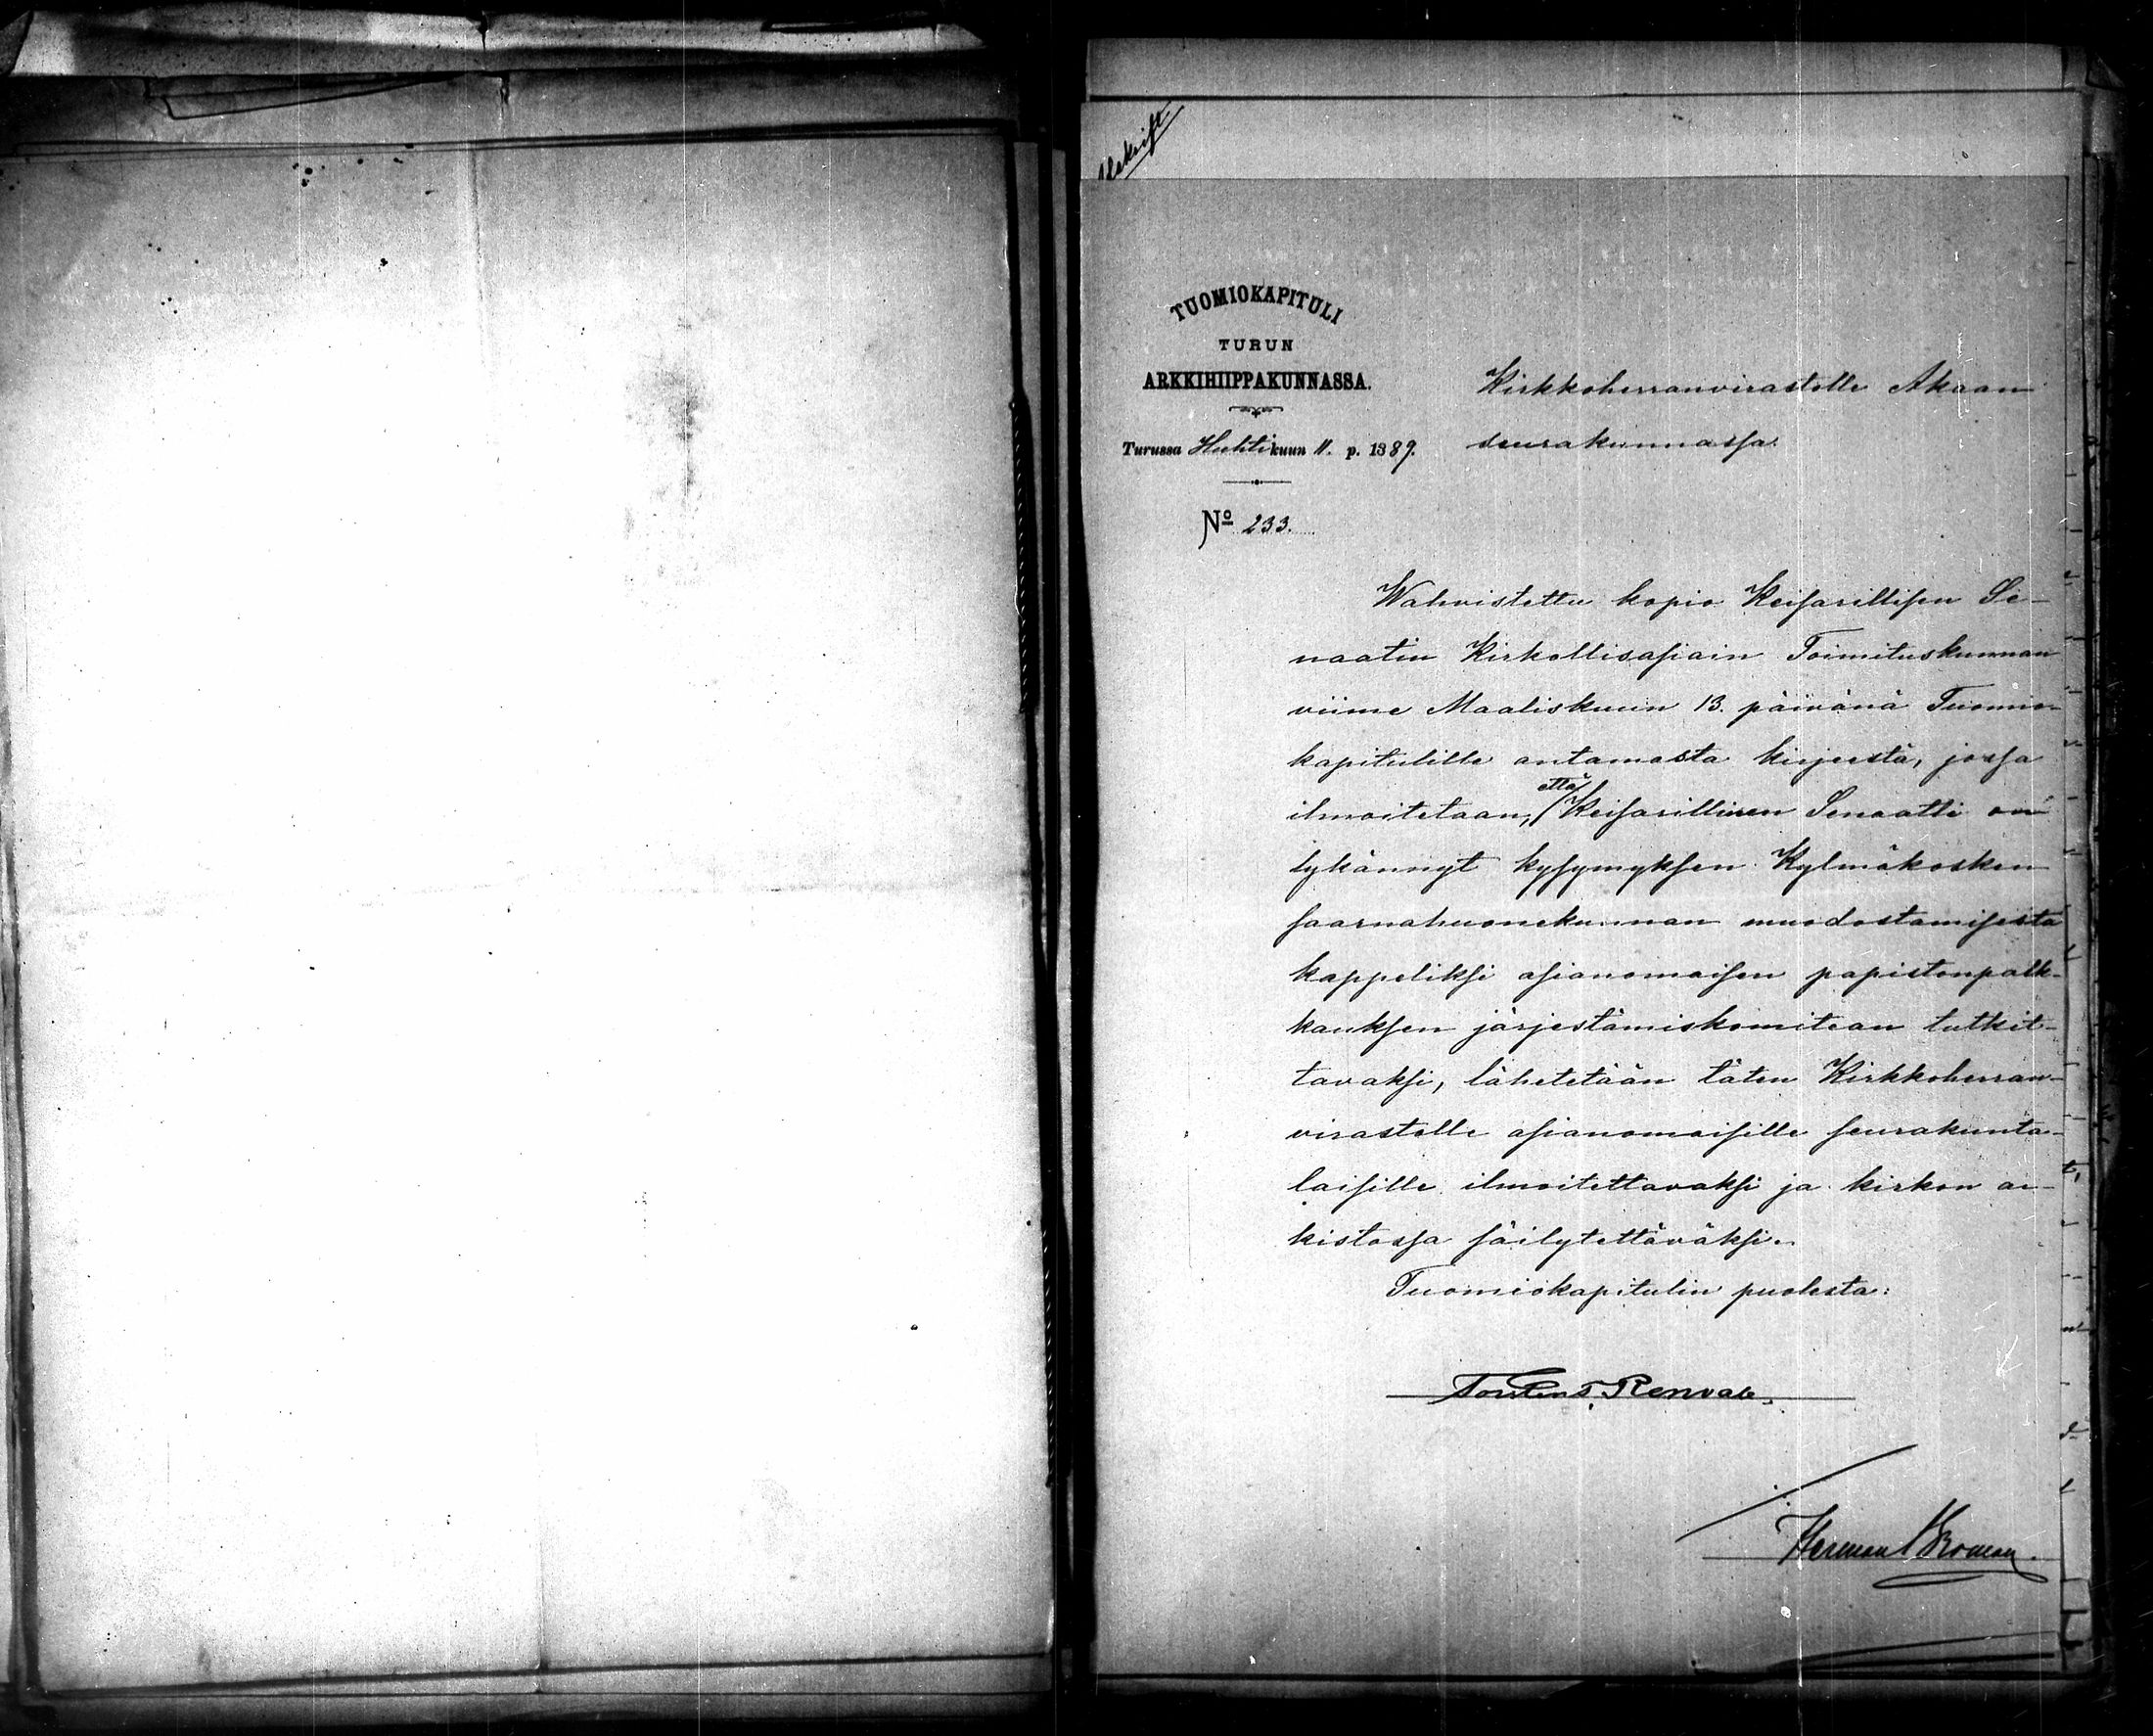 Utskrift
TUOMIOKAPITULI
TURUN
ARKKIHIIPPAKUNNASSA.
Turussa Huhtikuun 11. p. 1889.
No 233.
Kirkkoherranvirastolle Akaan
seurakunnassa.
Wahvistettu kopio Keisarillisen Se-
naatin Kirkollisasiain Toimituskunnan
viime Maaliskuun 13. päivänä Tuomio-
kapitulille antamasta kirjeestä, jossa
ilmoitetaan, että Keisarillinen Senaatti on
lykännyt kysymyksen Kylmäkosken
saarnahuonekunnan muodostamisesta
kappeliksi asianomaisen papistonpalk-
kauksen järjestämiskomitean tutkit-
tavaksi, lähetetään täten Kirkkoherran-
virastolle asianomaisille seurakunta-
laisille ilmoitettavaksi ja kirkon ar-
kistossa säilytettäväksi.
Tuomiokapitulin puolesta:
Torsten T. Renvall
Herman Roman.